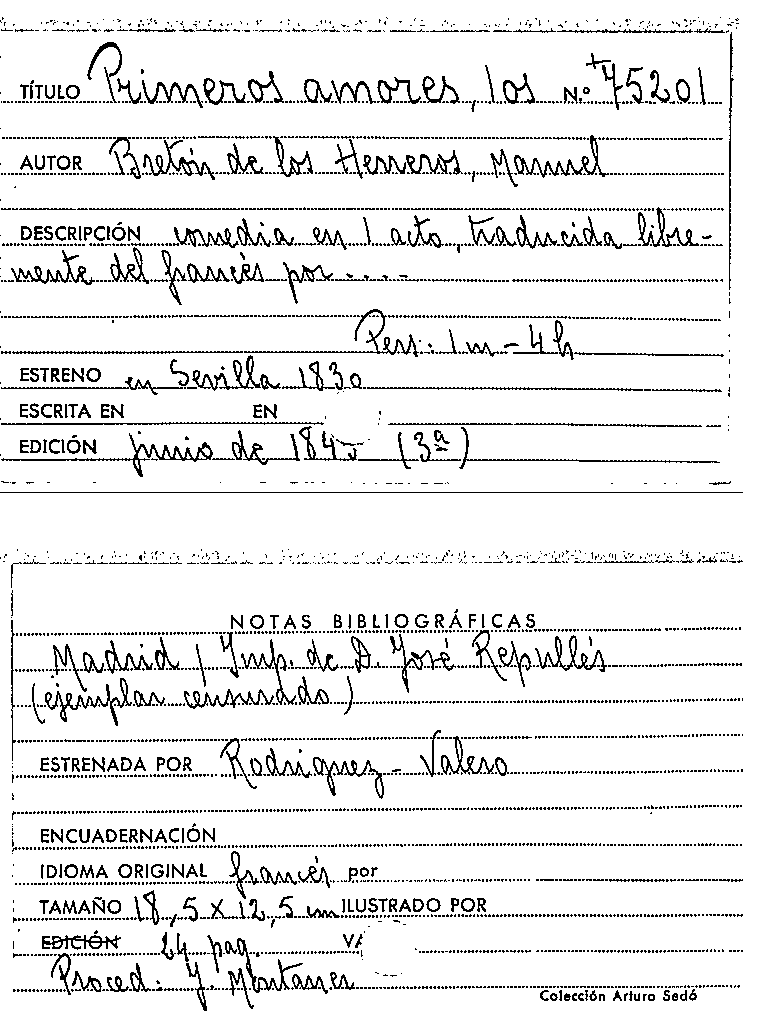 TÍTULO Primeros amores, los N.º +75201
AUTOR Bretón de los Herreros, Manuel
DESCRIPCIÓN comedia en 1 acto, traducida libre-
mente del francés por ....
Pers: 1 m - 4 h
ESTRENO en Sevilla 1830
ESCRITA EN EN
EDICIÓN junio de 1845 (3ª)
NOTAS BIBLIOGRÁFICAS
Madrid / Imp. de D. José Repullés
(ejemplar censurado)
ESTRENADA POR Rodriguez - Valero
ENCUADERNACIÓN
IDIOMA ORIGINAL francés por
TAMAÑO 18,5 x 12,5 cm ILUSTRADO POR
EDICIÓN 24 pag. VA
Proced: Y. Montaner
Colección Arturo Sedó